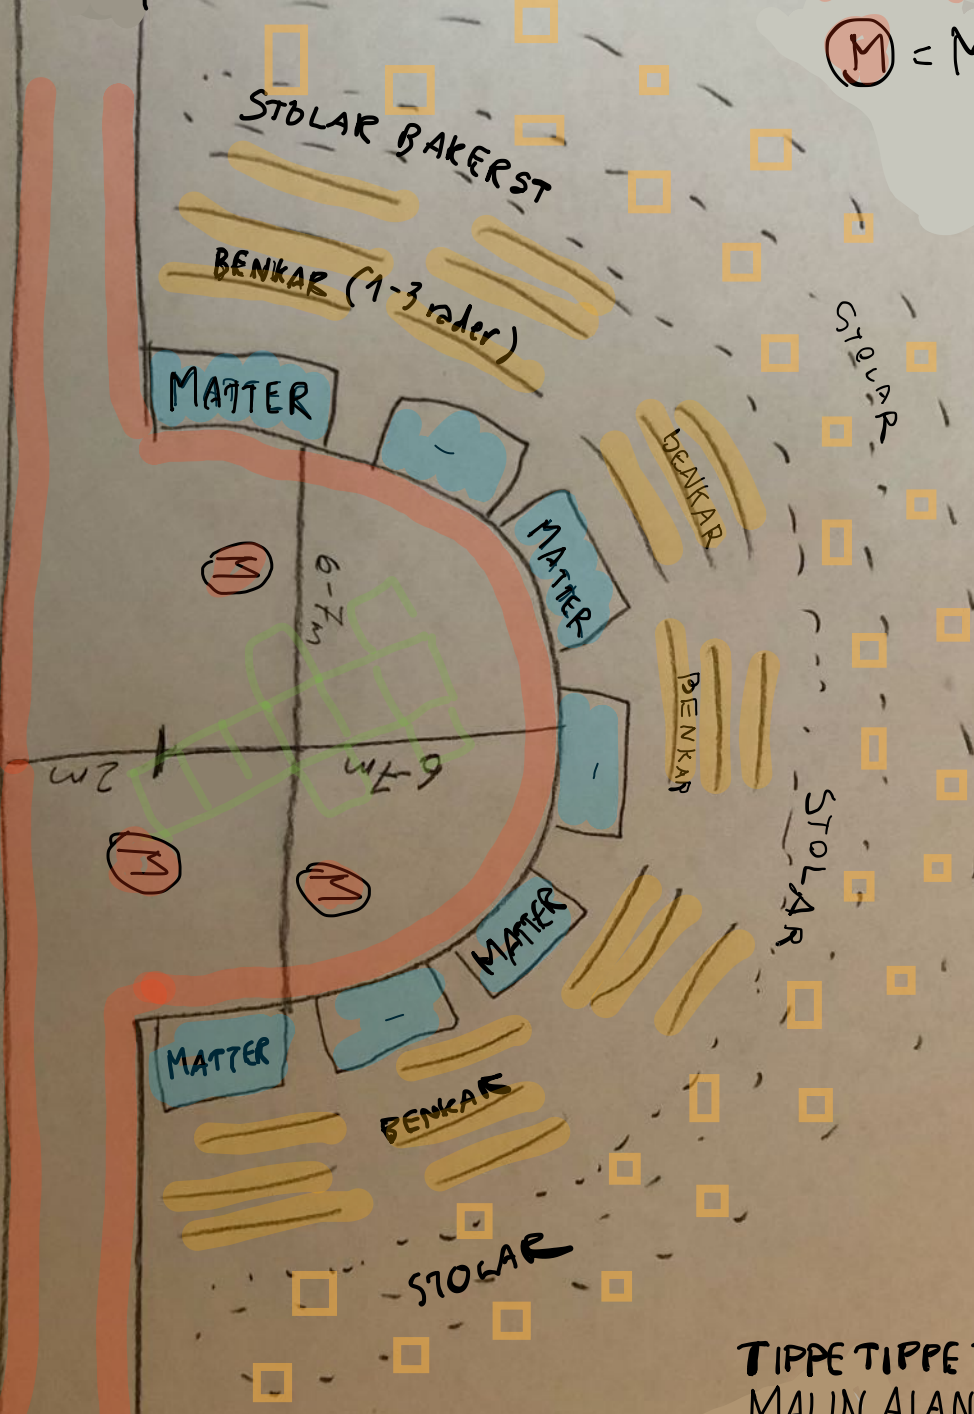 M = M
STOLAR BAKERST
BENKAR (1-3 rader)
STOLAR
MATTER
BENKAR
MATTER
M
6-7m
BENKAR
2m
6-7m
STOLAR
M
M
MATTER
MATTER
BENKAR
STOLAR
TIPPETIPPE
MALIN ALAN